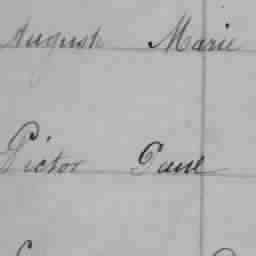 August Marie
Victor Paul